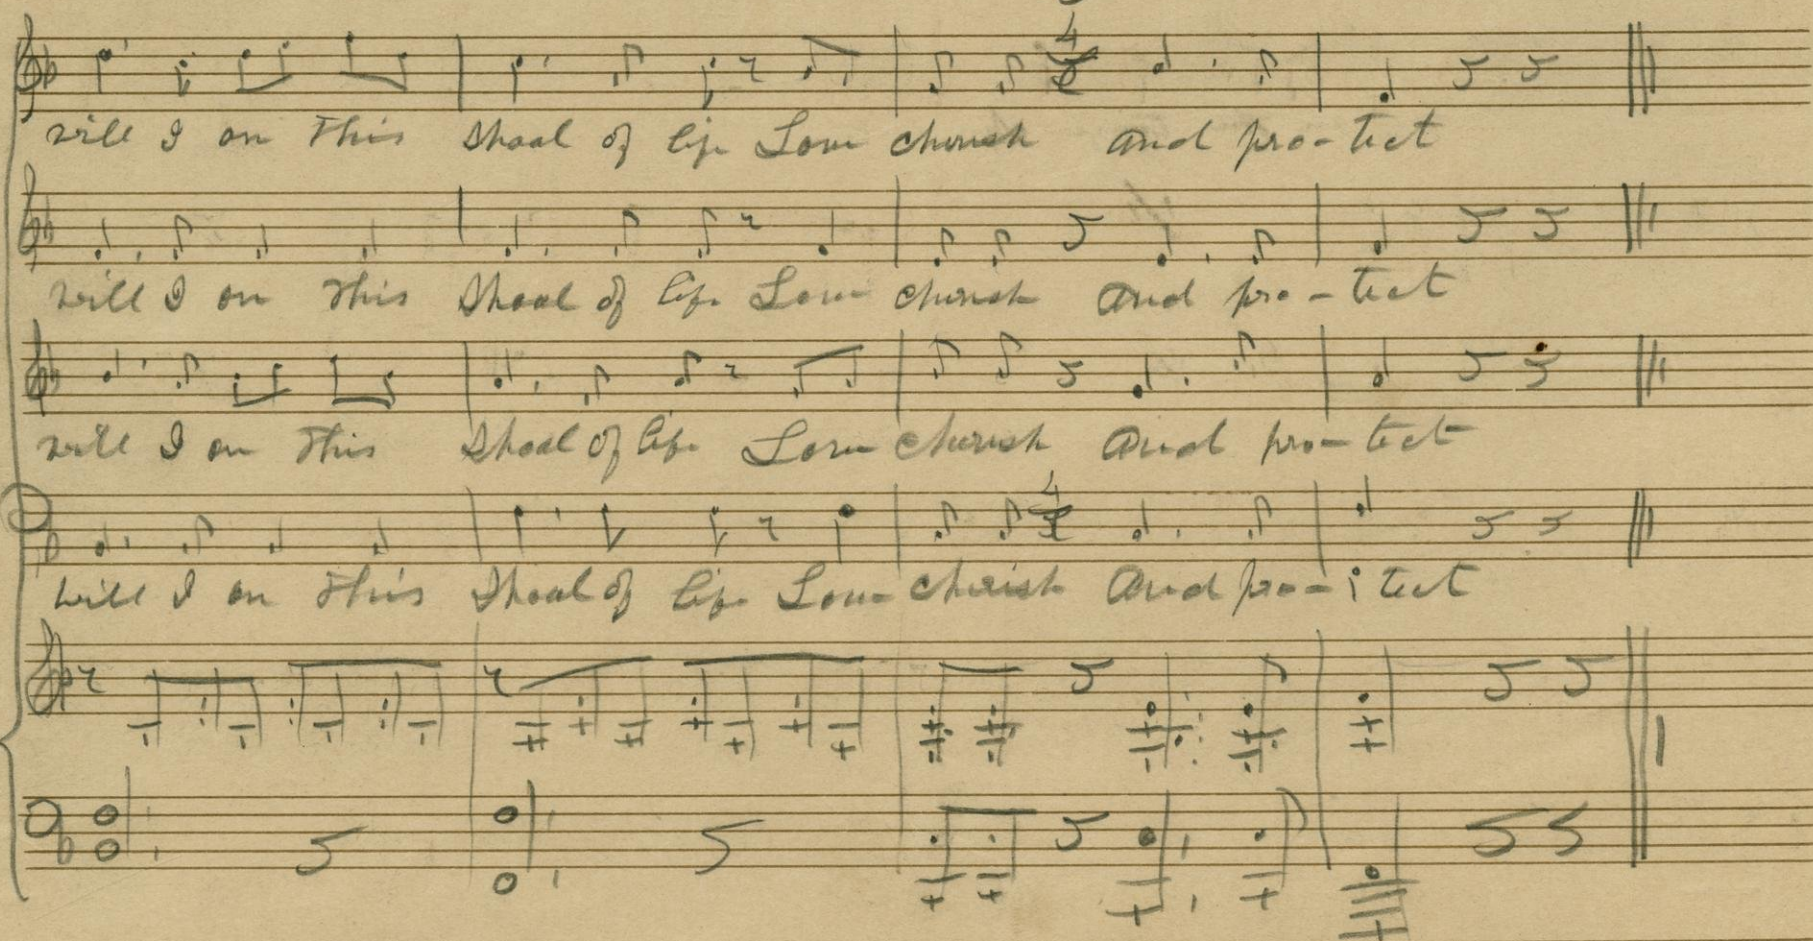 will I on This Shoal of life Love cherish and pro-tect
will I on This Shoal of life Love cherish and pro-tect
will I on This Shoal of life Love cherish and pro-tect
will I on This Shoal of life Love cherish and pro-tect